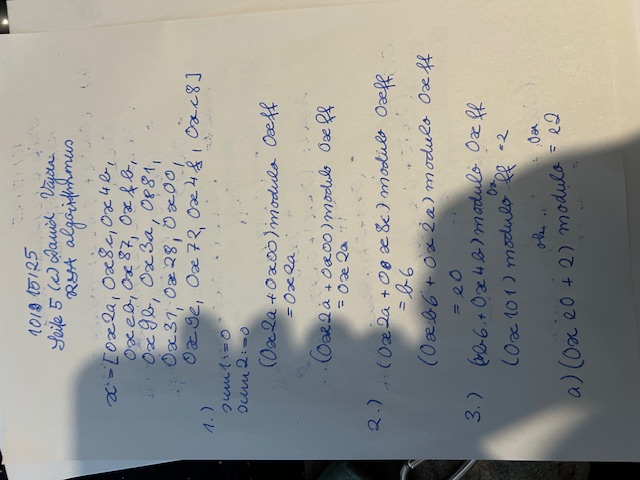 10.10.15|25
Seite 5 (c) David Vajda
Rest algorithmus
x=[0x2a, 0x8c, 0x4b,
0xea, 0x87, 0xfb,
0x9b, 0x3a, 0881,
0x31, 0x28, 0x00,
0x9e, 0x72, 0x4f, 0xc8]
1.)
sum1:=0
sum2:=0
(0x2a+0x00) modulo 0xff
=0x2a
(0x2a+0x00) modulo 0xff
=0x2a
2.) (0x2a+0x8c) modulo 0xff
= b6
(0xb6+0x2a) modulo 0xff
= e0
3.) (b6+0x4b) modulo 0xff
(0x101) modulo 0xff = 2
a) (0xe0+2) modulo = e2